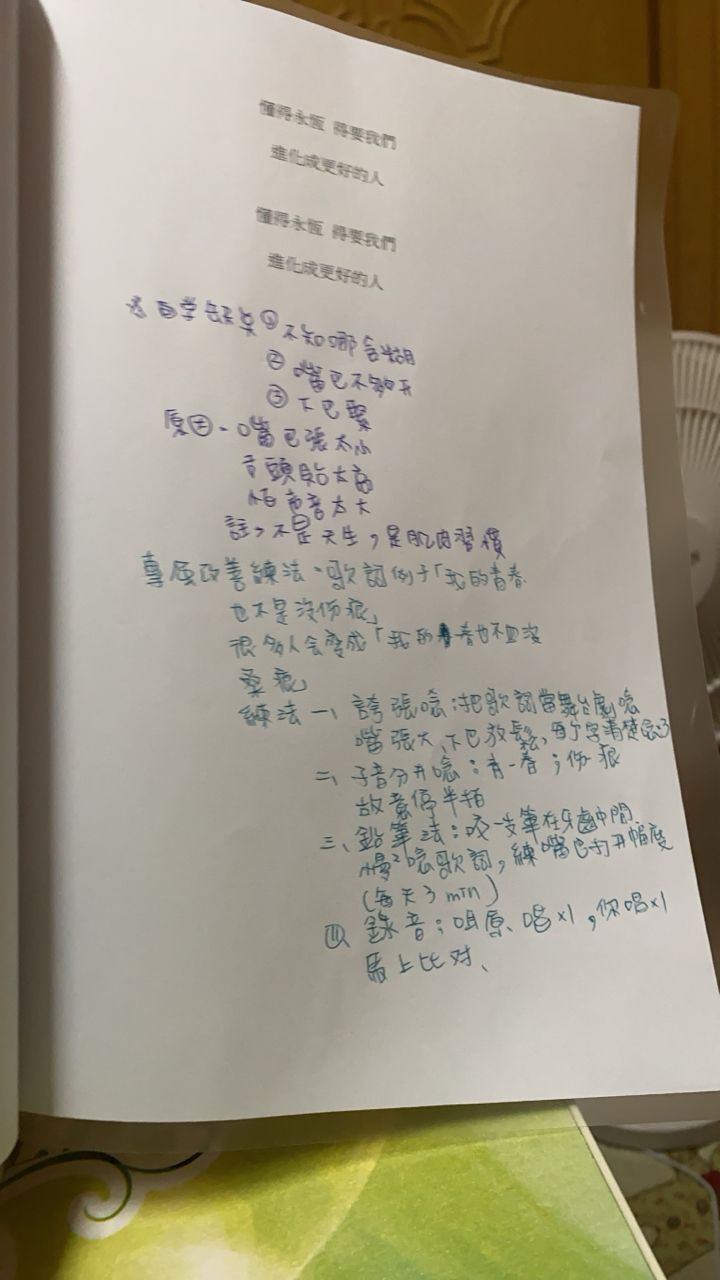 懂得永恆 得要我們
進化成更好的人
懂得永恆 得要我們
進化成更好的人
自学缺矣① 不知哪含糊
② 嘴巴不夠开
③ 下巴緊
原因、嘴巴張太小
舌頭貼太高
怕声音太大
註,不是天生,是肌肉習慣
專属改善練法、歌詞例子「我的青春
也不是没伤痕」
很多人会変成「我的 春也不 没
痕」
練法一、誇張唸:把歌詞當舞台劇唸
嘴張大、下巴放鬆,每个字清楚
二、子音分开唸:青-春;伤-痕
故意停半拍
三、鉛筆法:咬一支筆在牙齒中間
慢慢唸歌詞,練嘴巴打开幅度
(每天3 min)
四、錄音:唱原、唱×1,你唱×1
馬上比对、